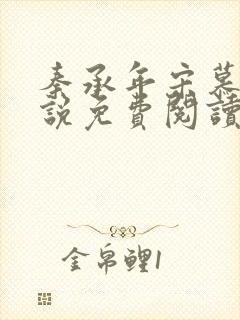 秦承年宋慕
說免費閱讀
金帛鯉1